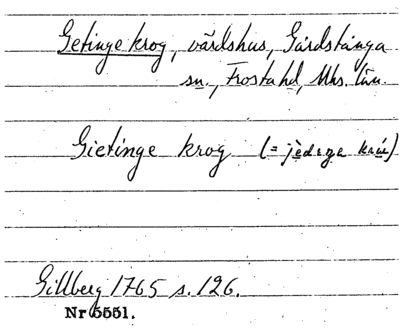 Getinge krog, värdshus, Gårdstånga
sn., Frosta hd, Mhs. län.
Gietinge krog (= jèdeŋa kro)
Gillberg 1765 s. 126.
Nr 5551.